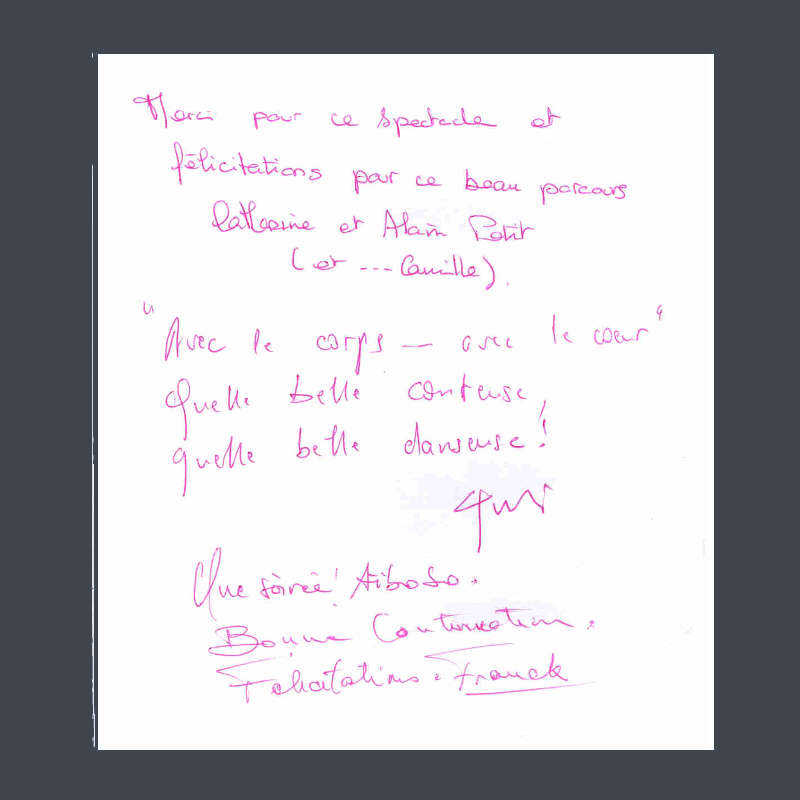 Merci pour ce spectacle et
félicitations pour ce beau parcours
Catherine et Alain Petit
(et --- Camille).
"Avec le corps — avec le cœur"
Quelle belle conteuse,
quelle belle danseuse!
Que soirée!
Bonne Continuation.
Felicitations. Franck